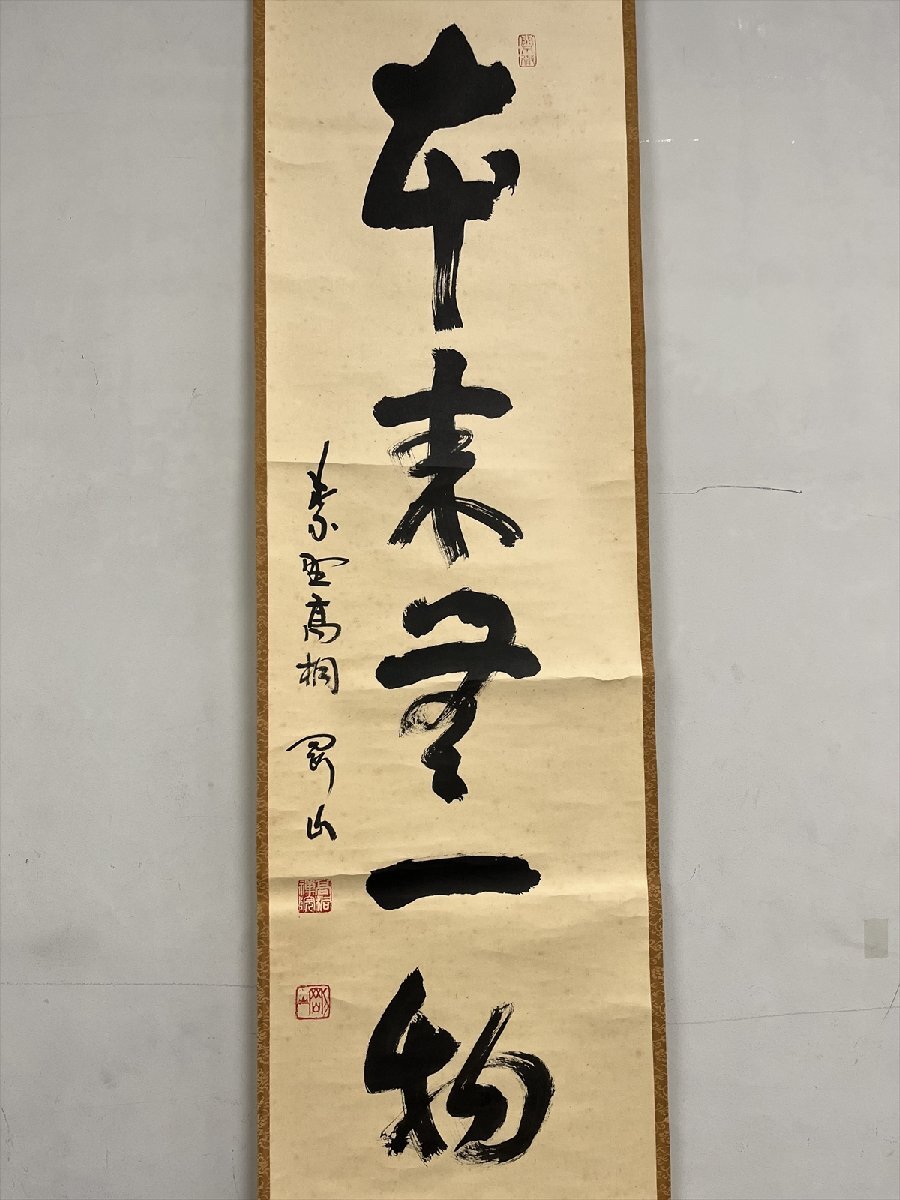 本来無一物
紫野高桐 剛山